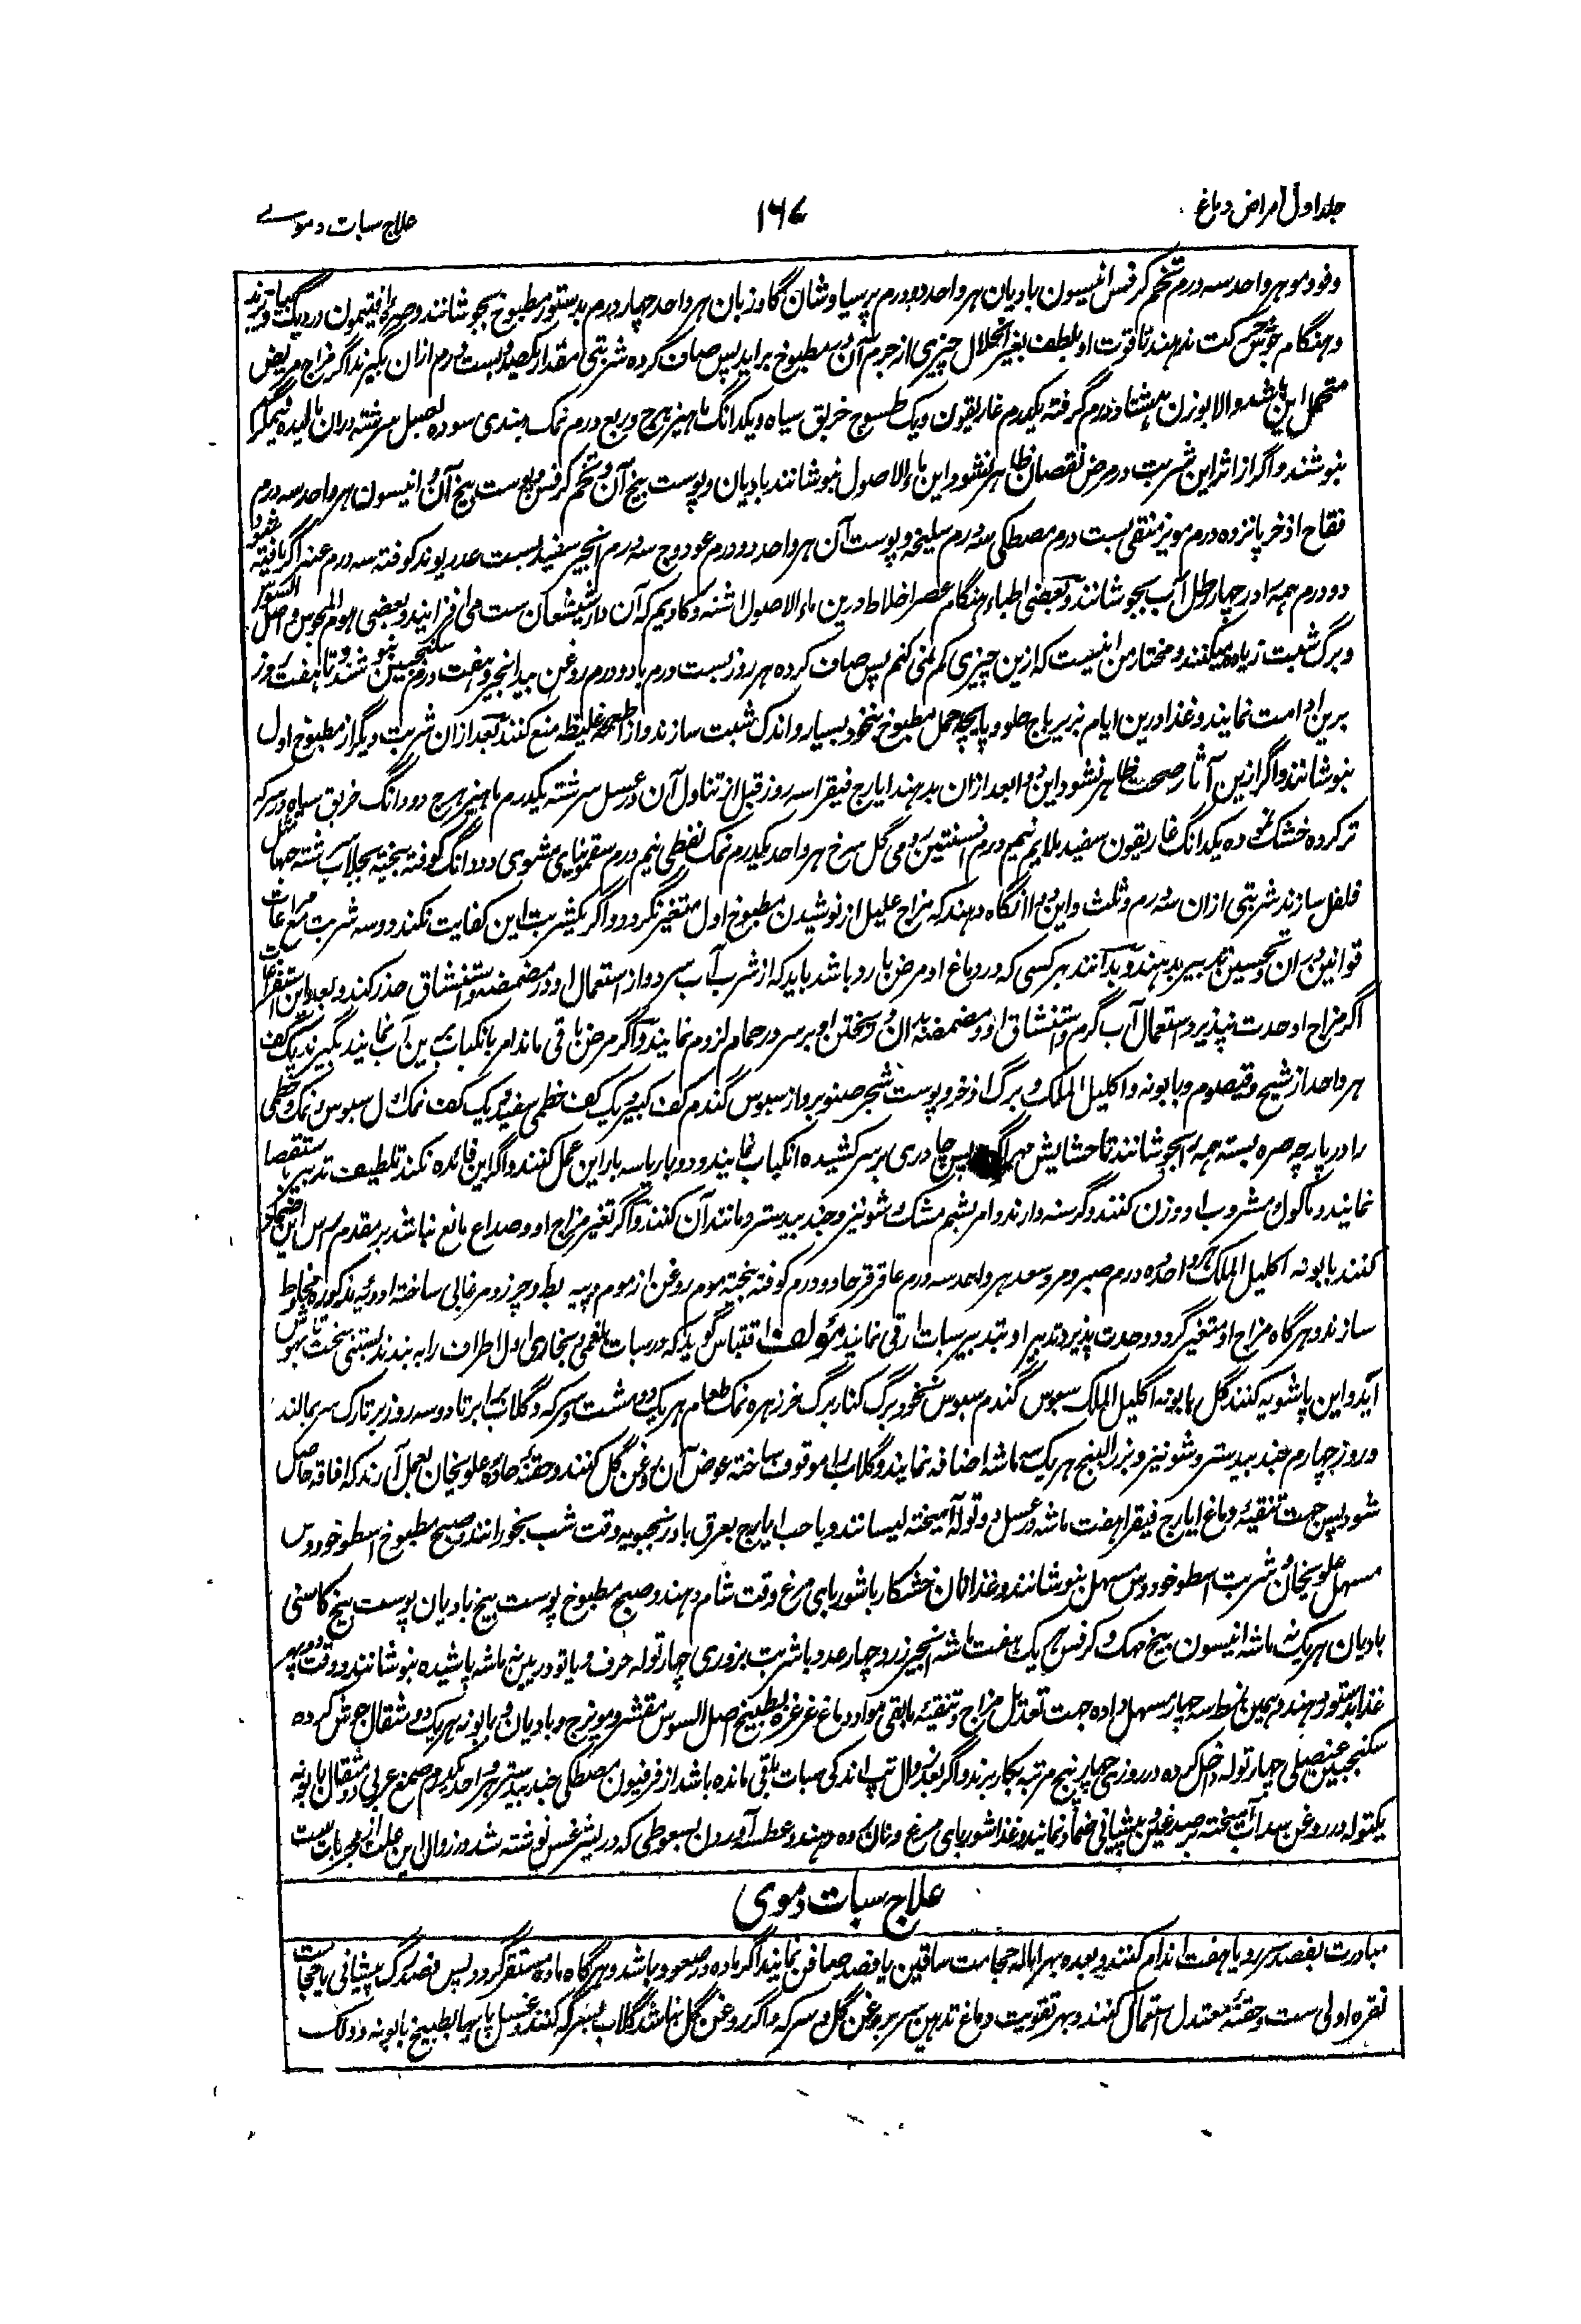 جلد اول امراض دماغ
۱۶۷
علاج سبات دموی
وفودمو هر واحد سه درم تخم کرفس انیسون بادیان هر واحد دو درم پرسیاوشان گاوزبان هر واحد چهار درم بدستور مطبوخ بجوشانند و صره افتیمون در دیگ
و هنگام جوش حرکت ندهند تا قوت او بلطف بغیر انحلال چیزی از جرم آن در مطبوخ براید پس صاف کرده شربتی مقدار یکصد و بست درم ازان بگیرند اگر مزاج مریض
متحمل این باشد والا بوزن هشتاد درم گرفته یکدرم غاریقون و یک طسوج خربق سیاه و یکدانگ ماهیزهرج و ربع درم نمک هندی سوده بعسل سرشته دران مالیده نیمگرم
بنوشند و اگر از اثر این شربت در مرض نقصان ظاهر نشود این ماء الاصول بنوشانند بادیان و پوست بیخ آن و تخم کرفس و پوست بیخ آن و انیسون هر واحد سه درم
فقاح اذخر پانزده درم مویز منقی بست درم مصطکی سه درم سلیخه و پوست آن هر واحد دو درم عود وج سه درم انجیر سفید بست عدد ریوند کوفته سه درم عنبر اگر یافته شود
دو درم همه را در چهار رطل آب بجوشانند و بعضی اطباء هنگام عصر اخلاط درین ماء الاصول اشنه و کادیم که آن دارشیشعان ست می افزایند و بعضی هوم المجوس و اصل السوس
و برگ شبت زیاده میکنند و مختار من اینست که ازین چیزی کم نمی کنم پس صاف کرده هر روز بست درم با دو درم روغن بیدانجیر و هفت درم سکنجبین بنوشند و تا هفت روز
برین مداومت نمایند و غذا درین ایام زیرباج حلو و پایچه حمل مطبوخ بنخود بسیار و اندک شبت سازند و از اطعمه غلیظه منع کنند بعد ازان شربت دیگر از مطبوخ اول
بنوشانند و اگر ازین آثار صحت ظاهر نشود این دوا بعد ازان بدهند ایارج فیقرا سه روز قبل از تناول آن در عسل سرشته یکدرم ماهیزهرج دو دانگ خربق سیاه در سرکه
تر کرده خشک نموده یکدانگ غاریقون سفید ملایم نیم درم افسنتین رومی گل سرخ هر واحد یکدرم نمک نفطی نیم درم سقمونیای مشوی دو دانگ کوفته بیخته بجلاب سرشته حبها مثل
فلفل سازند شربتی ازان سه درم و ثلث و این دوا آنگاه دهند که مزاج علیل از نوشیدن مطبوخ اول متغیر نگردد و اگر یکشربت این کفایت نکند دو سه شربت مع مراعات
قوانین بران و تحسین تدبیر بدهند و بدانند هر کسی که در دماغ او مرض بارد باشد باید که از شرب آب سرد و از استعمال او در مضمضه و استنشاق حذر کند و بعد این استفراغات
اگر مزاج او حدت نپذیرد استعمال آب گرم و استنشاق او و مضمضه بدان و ریختن او بر سر در حمام لزوم نمایند و اگر مرض باقی ماند امر بانکباب برین آب نمایند بگیرند یک کف
هر واحد از شیح و قیصوم و بابونه و اکلیل الملک و برگ اذخر و پوست شجر صنوبر و از سبوس گندم کف کبیر و یک کف خطمی سفید و یک کف نمک اول سبوس و نمک و خطمی
را در پارچه صره بسته همه را بجوشانند تا حشایش مهرا گردد پس چادری بر سر کشیده انکباب نمایند و دو بار یا سه بار این عمل کنند و اگر این فائده نکند تلطیف تدبیر باستقصا
نمایند و ماکول و مشروب او وزن کنند و گرسنه دارند و امر بشم مشک و شونیز و جندبیدستر و مانند آن کنند و اگر تغیر مزاج او و صداع مانع نباشد بر مقدم راس این ضماد
کنند بابونه اکلیل الملک هر واحد ده درم صبر و مر و سعد هر واحد سه درم عاقرقرحا دو درم کوفته بیخته موم روغن از موم و پیه بط و چرزو مرغابی ساخته ادویه مذکوره مخلوط
سازند و هرگاه مزاج او متغیر گردد و حدت پذیرد تدبیر او بتدبیر سبات ارقی نمایند مؤلف اقتباس گوید که در سبات بلغمی و بخاری اول اطراف را به بندند بستنی سخت تا بهوش
آید و این پاشویه کنند گل بابونه اکلیل الملک سبوس گندم سبوس نخود برگ کنار برگ خرزهره نمک طعام هر یک دو مشت و سرکه و گلاب برابر تا دو سه روز بر تارک سر بمالند
و روز چهارم جندبیدستر و شونیز و بزرالبنج هر یک سه ماشه اضافه نمایند و گلاب را موقوف ساخته عوض آن روغن گل کنند و حقنه حاده علویخان بعمل آرند که افاقه حاصل
شود پس جهت تنقیه دماغ ایارج فیقرا هفت ماشه در عسل دو توله آمیخته لیسانند و یا حب ایارج بعرق بادرنجبویه وقت شب بخورانند و صبح مطبوخ اسطوخودوس
مسهل علویخان و شربت اسطوخودوس مسهل بنوشانند و غذا نان خشکار با شوربای مرغ وقت شام دهند و صبح مطبوخ پوست بیخ بادیان پوست بیخ کاسنی
بادیان هر یک نه ماشه انیسون بیخ مهک و کرفس هر یک هفت ماشه انجیر زرد چهار عدد با شربت بزوری چهار توله حرف و یا تودرین نه ماشه پاشیده بنوشانند و وقت دوپهر
غذا بدستور دهند و همین نمط سه چهار مسهل داده جهت تعدیل مزاج و تنقیه مابقی مواد دماغ غرغره بطبیخ اصل السوس مقشر و مویزج و بادیان و بابونه هر یک دو مثقال جوش کرده
سکنجبین عنصلی چهار توله داخل کرده در روزی چهار پنج مرتبه بکار برند و اگر بعد زوال تپ اندکی سبات باقی مانده باشد از فرفیون مصطکی جندبیدستر هر واحد یکدرم صمغ عربی دو مثقال بابونه
یکتوله در روغن سداب آمیخته بر صدغین و پیشانی ضماد نمایند و غذا شوربای مرغ و نان کوه دهند و عطسه آوردن بسعوطی که در لیثرغس نوشته شد در زوال این علت از مجربات ست
علاج سبات دموی
مبادرت بفصد سررو یا هفت اندام کنند و بعده بهر اماله حجامت ساقین یا فصد صافن نمایند اگر ماده در صعود باشد و هرگاه ماده مستقر گردد پس فصد رگ پیشانی یا حجامت
نقره اولی ست و حقنه معتدل استعمال کنند و بهر تقویت دماغ تدهین سر بروغن گل و سرکه و اگر روغن گل نباشد گلاب بسرکه کنند و غسل پایها بطبیخ بابونه و دلک